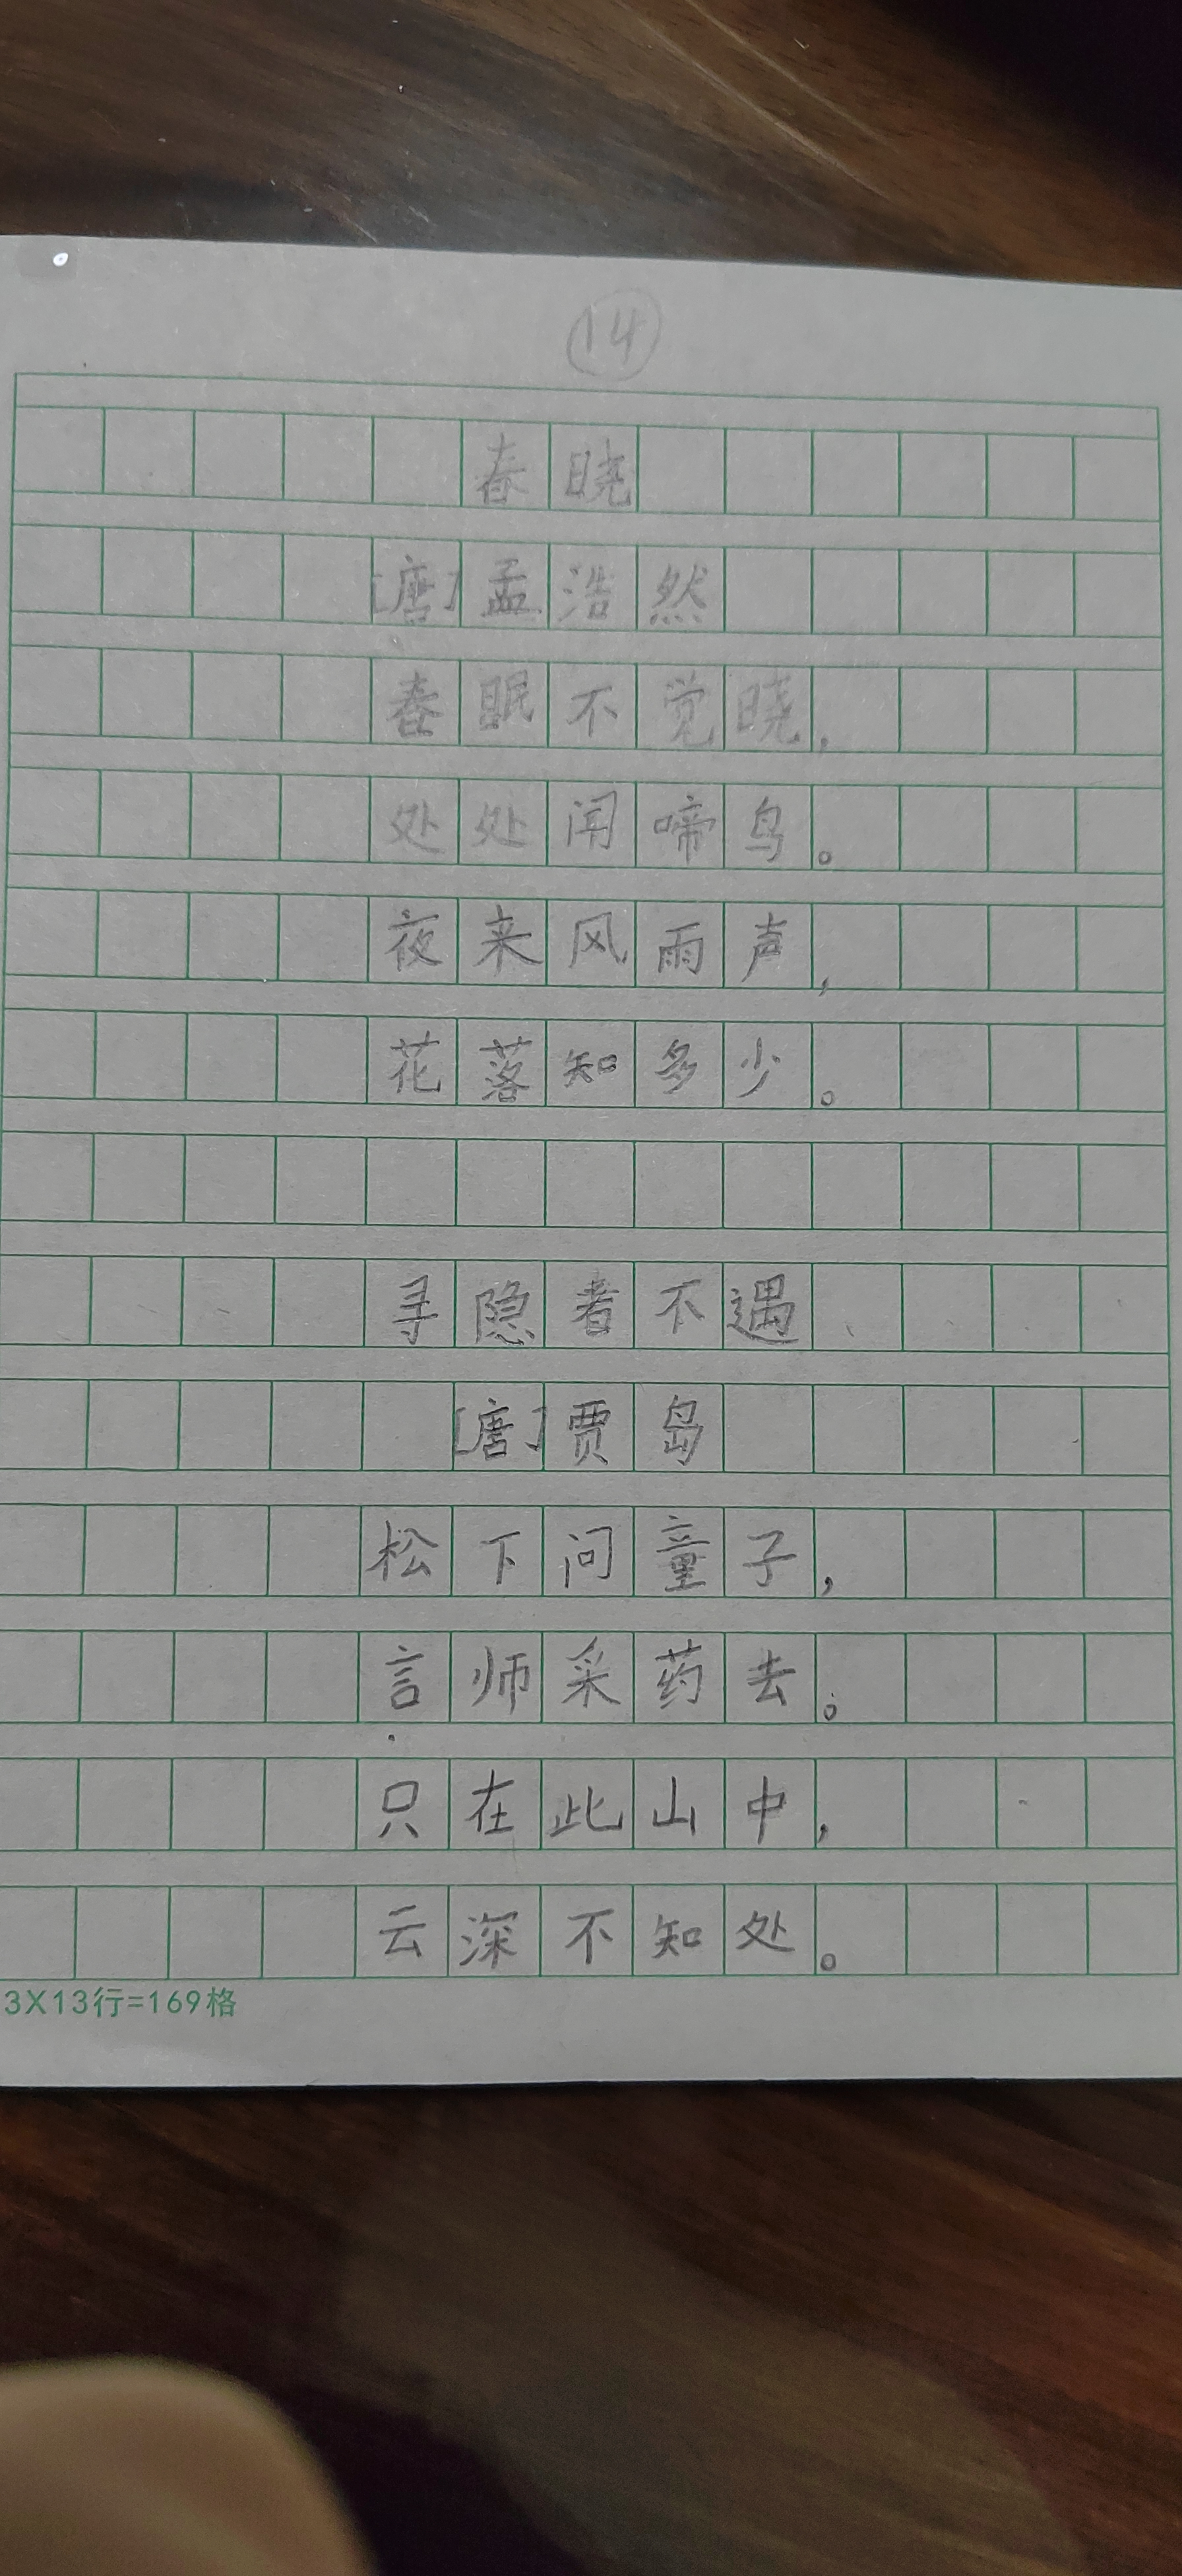 14
春晓
[唐]孟浩然
春眠不觉晓,
处处闻啼鸟。
夜来风雨声,
花落知多少。
寻隐者不遇
[唐]贾岛
松下问童子,
言师采药去。
只在此山中,
云深不知处。
3X13行=169格